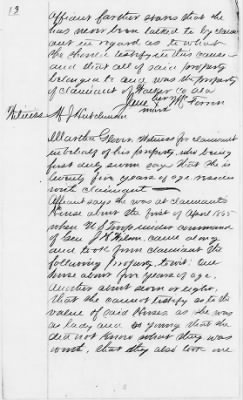 13
Affiant further states that she
has never been talked to by claim
ant in regard as to what
she should testify in this cause
and that all of said property
belonged to and was the property
of claimant of Walker Co Ala
Jane her x mark
Witness H J Hutcheson
Martha Glover witness for claimant
in behalf of his property, who being
first duly sworn says that she is
twenty five years of age resides
with claimant —
Affiant says she was at claimants
house about the first of April 1865
when U S Troops under command
of Gen J H Wilson came along
and took from claimant the
following property to wit: one
horse about five years of age.
Another about seven or eight,
that she cannot testify as to the
value of said horses as she was
a lady and so young that she
did not know what they was
worth, that they also took one